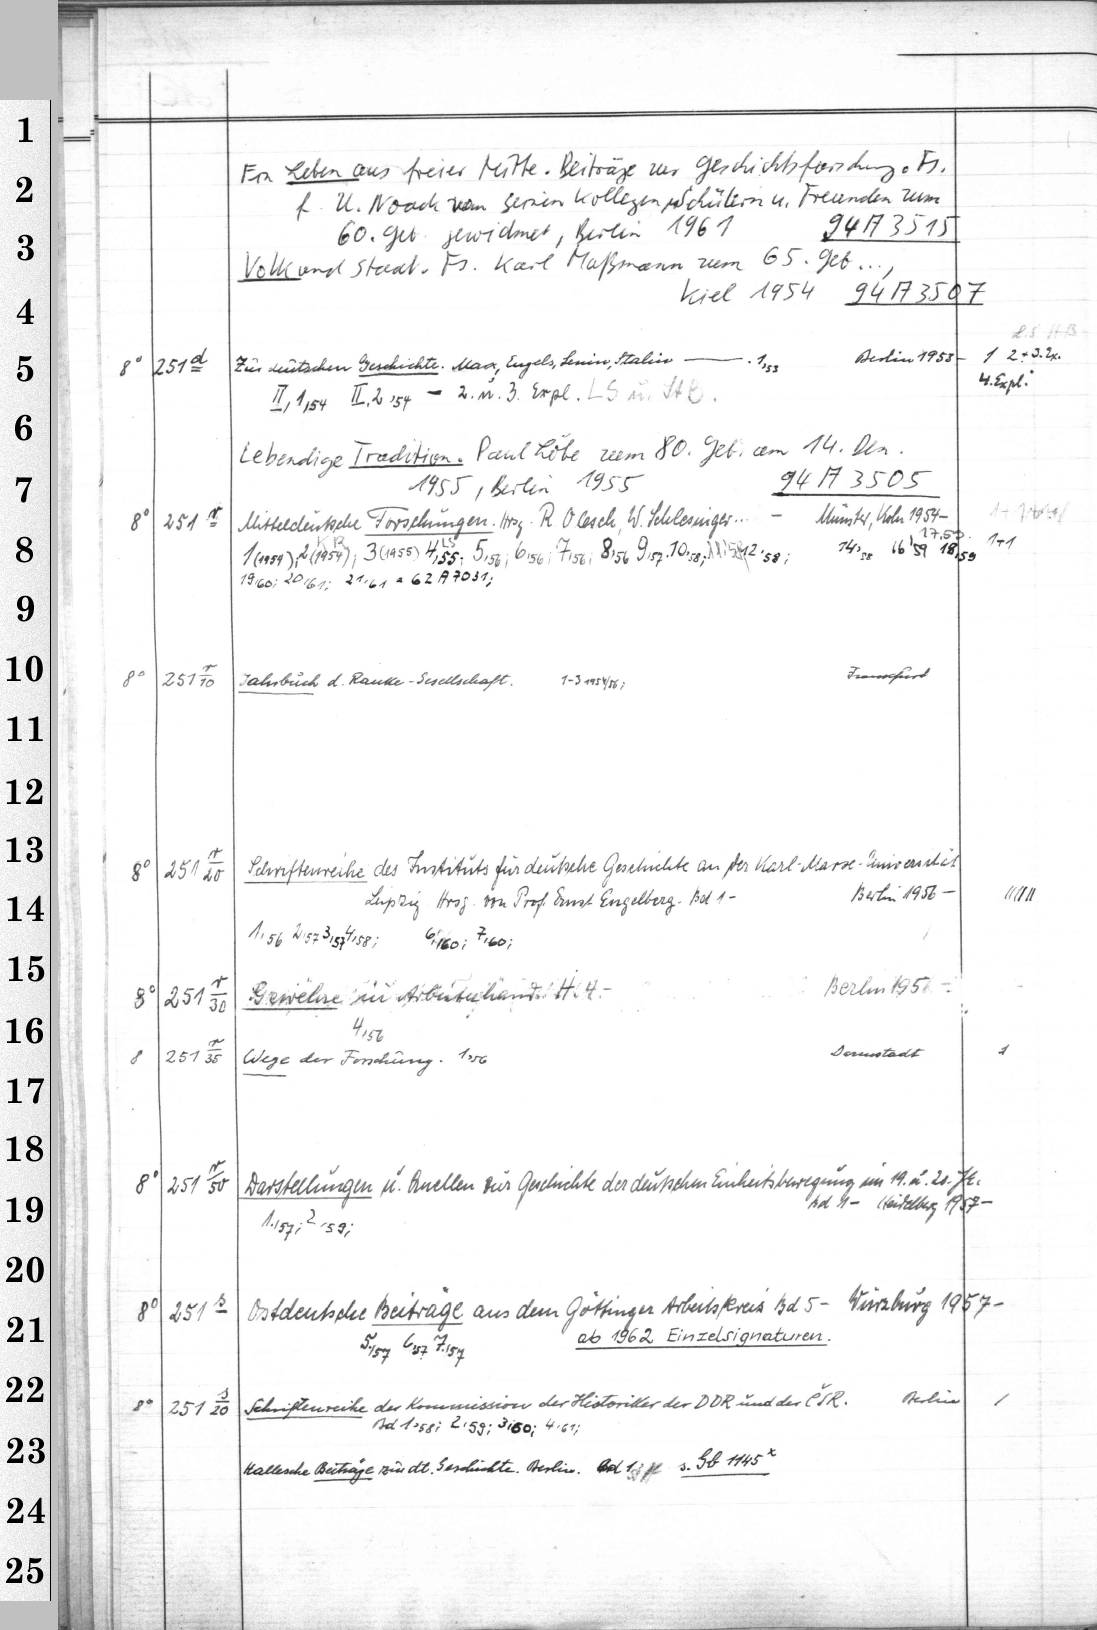 1
2
3
4
5
6
7
8
9
10
11
12
13
14
15
16
17
18
19
20
21
22
23
24
25
Ein Leben aus freier Mitte. Beiträge zur Geschichtsforschung. Fs.
f. U. Noack von seinen Kollegen, Schülern u. Freunden zum
60. Geb. gewidmet, Berlin 1961 94 A 3515
Volk und Staat. Fs. Karl Maßmann zum 65. Geb...,
Kiel 1954 94 A 3507
8° 251 d Zur deutschen Geschichte. Marx, Engels, Lenin, Stalin —— . 1,53 Berlin 1953– 1 2+3. Ex.
4. Expl.
II, 1,54 II, 2,54 – 2. u. 3. Expl. LS u. StB.
Lebendige Tradition. Paul Löbe zum 80. Geb. am 14. Dez.
1955, Berlin 1955 94 A 3505
8° 251 r Mitteldeutsche Forschungen. Hrsg. R. Olesch, W. Schlesinger... – Münster, Köln 1954–
1 (1954); 2 (1954); 3 (1955) 4,55; 5,56; 6,56; 7,56; 8,56 9,57. 10,58; 12,58; 14,58 16,59 17,59. 18,59 1+1
19,60; 20,61; 21,61 = 62 A 7031;
8° 251 r/10 Jahrbuch d. Ranke-Gesellschaft. 1-3 1954/56; Frankfurt
8° 251 r/20 Schriftenreihe des Instituts für deutsche Geschichte an der Karl-Marx-Universität
Leipzig Hrsg. von Prof. Ernst Engelberg. Bd 1– Berlin 1956 –
1,56 2,57 3,57 4,58; 6,60; 7,60;
8° 251 r/30 H. 4.– Berlin 195
4,56
8 251 r/35 Wege der Forschung. 1,56 Darmstadt 1
8° 251 r/50 Darstellungen u. Quellen zur Geschichte der deutschen Einheitsbewegung im 19. u. 20. Jh.
Bd 1– Heidelberg 1957–
1,57; 2,59;
8° 251 s Ostdeutsche Beiträge aus dem Göttinger Arbeitskreis Bd 5– Würzburg 1957–
5,57 6,57 7,57 ab 1962 Einzelsignaturen.
8° 251 s/20 Schriftenreihe der Kommission der Historiker der DDR und der ČSR. Berlin /
Bd 1,58; 2,59; 3,60; 4,61;
Hallesche Beiträge zur dt. Geschichte. Berlin. Bd 1 s. Gb 1145 x